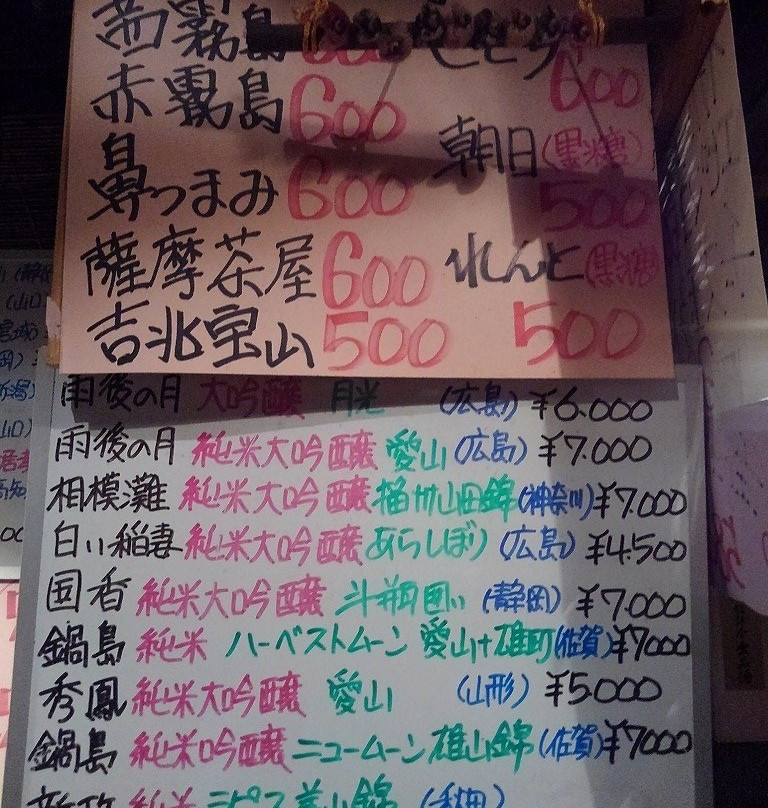 茜霧島 600
赤霧島 600
鼻つまみ 600
薩摩茶屋 600
吉兆宝山 500
600
朝日(黒糖)
500
れんと(黒糖)
500
雨後の月 大吟醸 月光 (広島) ¥6.000
雨後の月 純米大吟醸 愛山 (広島) ¥7.000
相模灘 純米大吟醸 播州山田錦 (神奈川) ¥7.000
白い稲妻 純米大吟醸 あらしぼり (広島) ¥4.500
国香 純米大吟醸 斗瓶囲い (静岡) ¥7.000
鍋島 純米 ハーベストムーン 愛山+雄町 (佐賀) ¥7000
秀鳳 純米大吟醸 愛山 (山形) ¥5.000
鍋島 純米吟醸 ニュームーン 雄山錦 (佐賀) ¥7000
新政 純米 美山錦 (秋田)